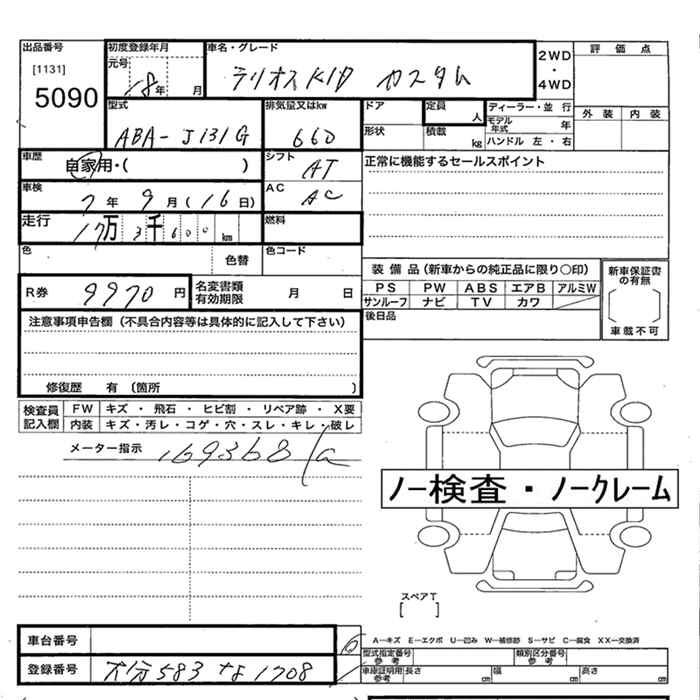 出品番号
[1131]
5090
初度登録年月
元号
18年 月
車名・グレード
テリオスKID カスタム
2WD
・
4WD
評価点
外装 内装
型式
ABA-J131G
排気量又はkw
660
ドア
形状
定員 人
積載 kg
ディーラー・並 行
モデル年式 年
ハンドル 左・右
車歴
自家用・( )
シフト
AT
正常に機能するセールスポイント
車検
7年 9月(16日)
AC
AC
走行
17万 3千 600 km
燃料
色
色替
色コード
R券 9970 円
名変書類有効期限 月 日
装備品(新車からの純正品に限り○印)
PS PW ABS エアB アルミW
サンルーフ ナビ TV カワ
新車保証書の有無
車載不可
後日品
注意事項申告欄(不具合内容等は具体的に記入して下さい)
修復歴 有 (箇所 )
検査員記入欄
FW キズ・飛石・ヒビ割・リペア跡・X要
内装 キズ・汚レ・コゲ・穴・スレ・キレ・破レ
メーター指示
169368
ノー検査・ノークレーム
スペアT
[ ]
車台番号
登録番号 大分583 な1708
A―キズ E―エクボ U―凹み W―補修跡 S―サビ C―腐食 XX―交換済
型式指定番号 参考
類別区分番号 参考
車庫証明用 参考 長さ cm 幅 cm 高さ cm